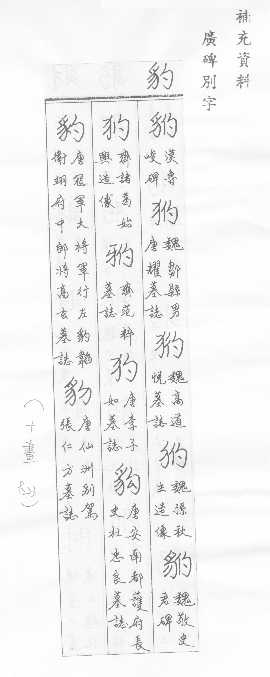 補充資料
廣碑別字
豹
豹漢魯峻碑豹魏鄭縣男唐耀墓誌豹魏高道悅墓誌豹魏孫秋生造像豹魏敬史君碑
豹齊諸葛始興造像豹隋范粹墓誌豹唐李子如墓誌豹唐安南都護府長史杜忠良墓誌
豹唐冠軍大將軍行左豹韜衛翊府中郎將高玄墓誌豹唐仙洲別駕張仁方墓誌
(十畫